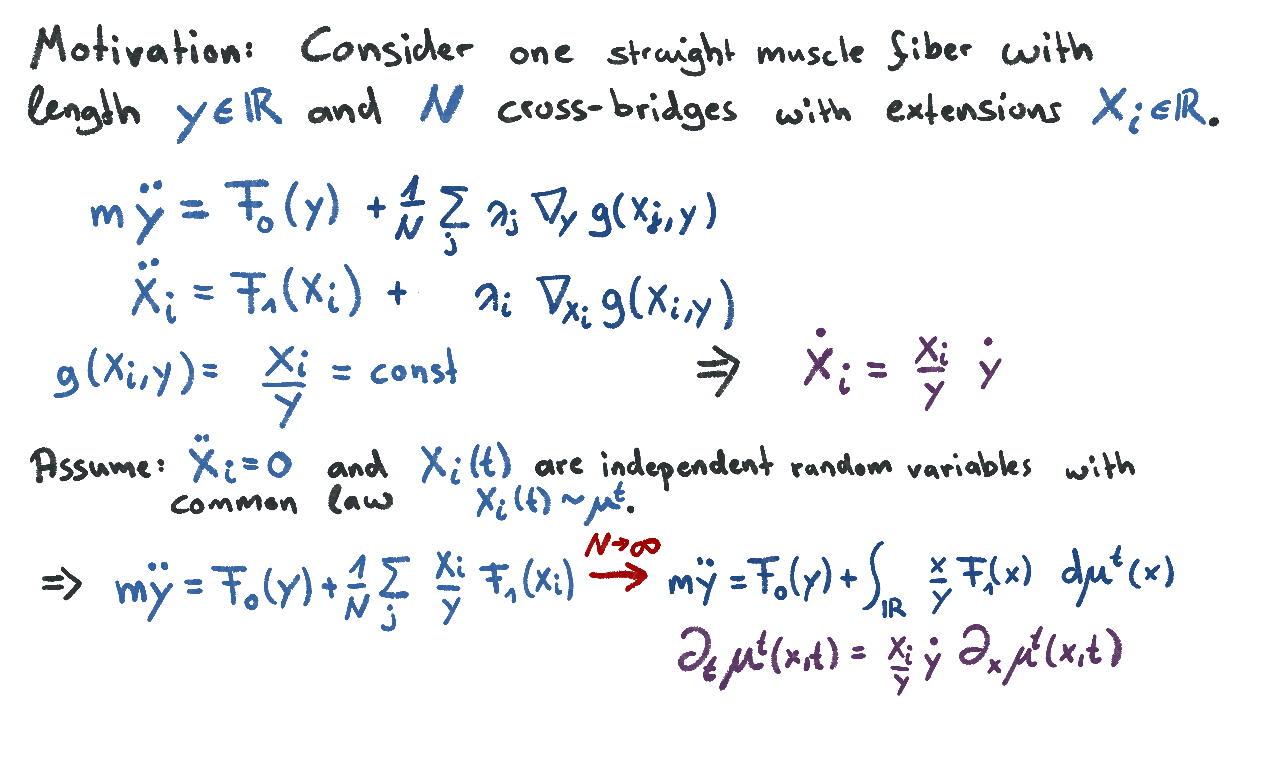 Motivation: Consider one straight muscle fiber with
length y ∈ ℝ and N cross-bridges with extensions X_i ∈ ℝ.
m ÿ = F_0(y) + 1/N Σ_j λ_j ∇_y g(X_j, y)
Ẍ_i = F_1(X_i) + λ_i ∇_{X_i} g(X_i, y)
g(X_i, y) = X_i/y = const ⇒ Ẋ_i = X_i/y ẏ
Assume: Ẍ_i = 0 and X_i(t) are independent random variables with
common law X_i(t) ~ μ^t.
⇒ m ÿ = F_0(y) + 1/N Σ_j X_i/y F_1(X_i) →^{N→∞} m ÿ = F_0(y) + ∫_ℝ x/y F_1(x) dμ^t(x)
∂_t μ^t(x,t) = X_i/y ẏ ∂_x μ^t(x,t)